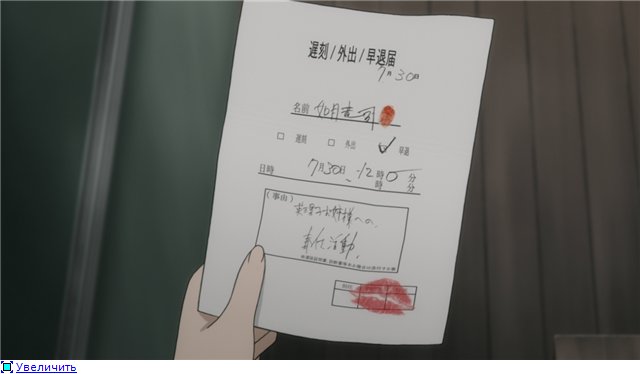 遅刻/外出/早退届
7月30日
名前 如月吉司
□ 遅刻 □ 外出 ✓ 早退
日時 7月30日 12時0分
時 分
(事由)
お姉様への、
奉仕活動。
Увеличить